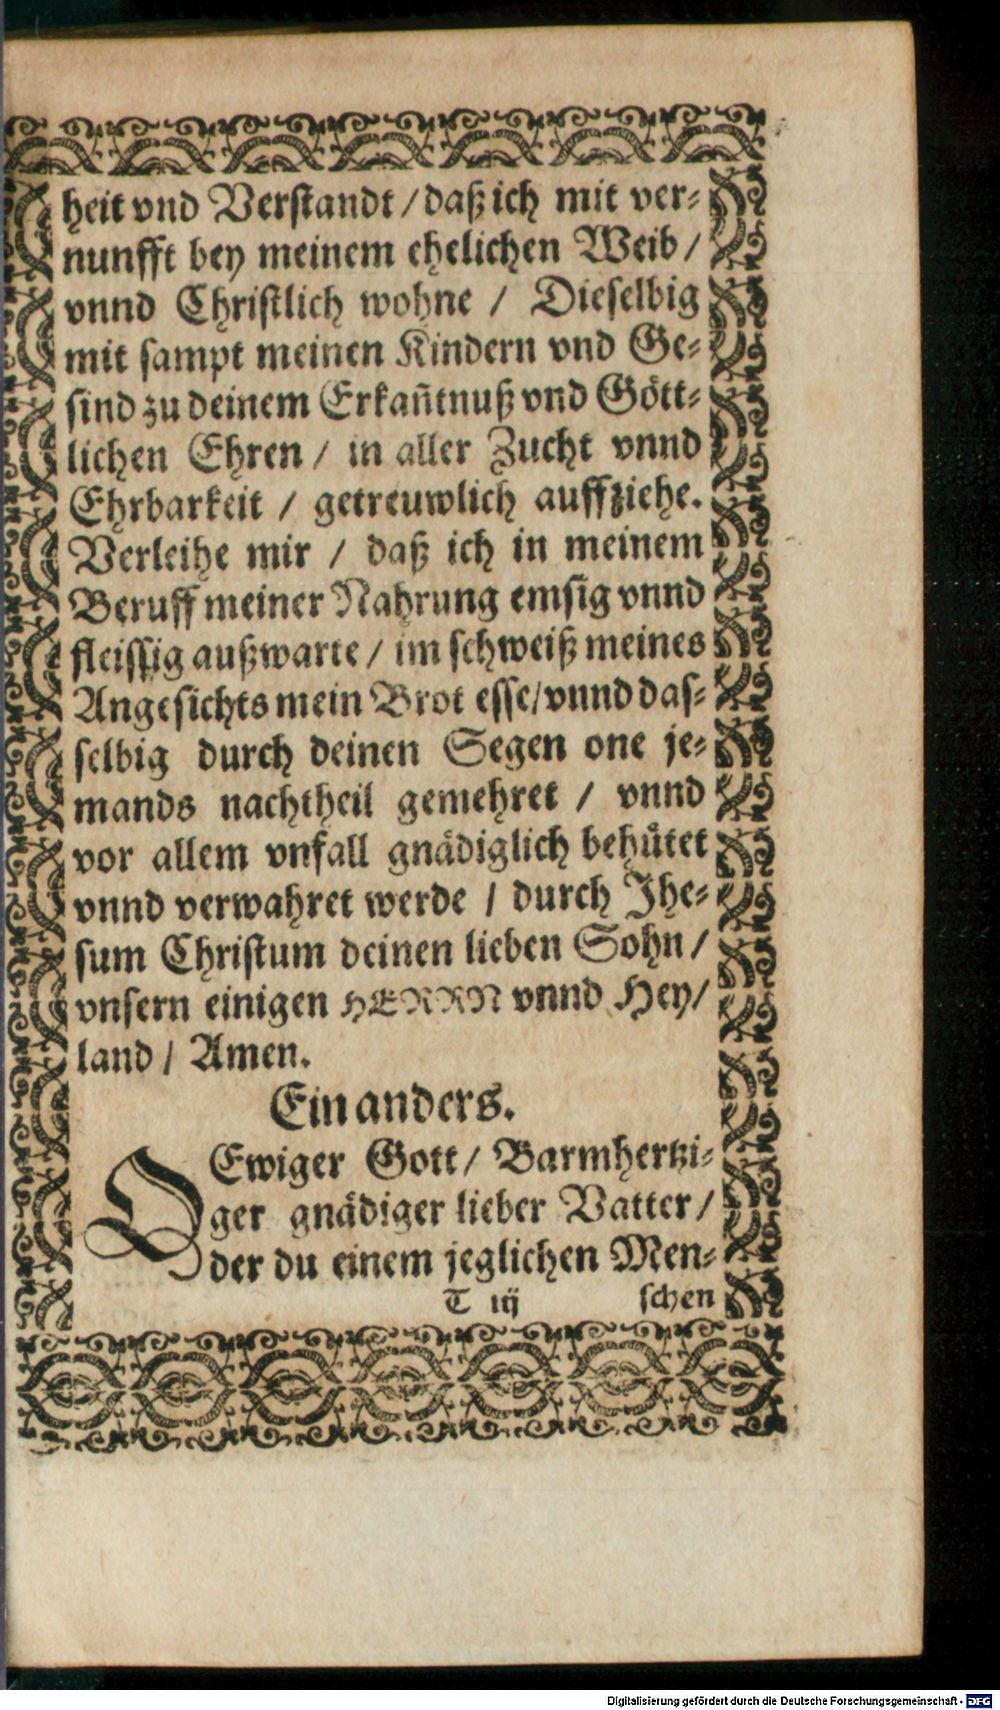 heit vnd Verstandt / daß ich mit ver⸗
nunfft bey meinem ehelichen Weib /
vnnd Christlich wohne / Dieselbig
mit sampt meinen Kindern vnd Ge⸗
sind zu deinem Erkañtnuß vnd Gött⸗
lichen Ehren / in aller Zucht vnnd
Ehrbarkeit / getreuwlich auffziehe.
Verleihe mir / daß ich in meinem
Beruff meiner Nahrung emsig vnnd
fleissig außwarte / im schweiß meines
Angesichts mein Brot esse / vnnd das⸗
selbig durch deinen Segen one je⸗
mands nachtheil gemehret / vnnd
vor allem vnfall gnädiglich behütet
vnnd verwahret werde / durch Jhe⸗
sum Christum deinen lieben Sohn /
vnsern einigen HERRN vnnd Hey/
land / Amen.
Ein anders.
O Ewiger Gott / Barmhertzi⸗
ger gnädiger lieber Vatter /
der du einem jeglichen Men⸗
T iij schen
Digitalisierung gefördert durch die Deutsche Forschungsgemeinschaft - DFG